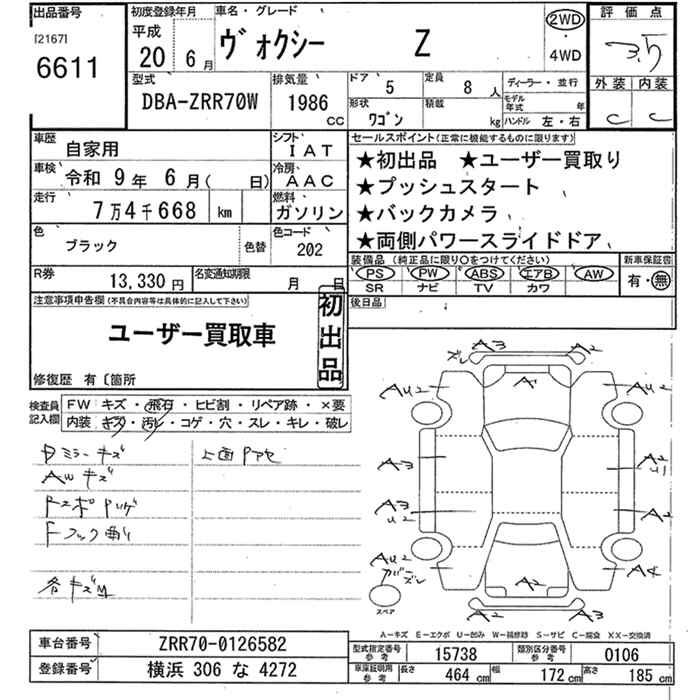 出品番号
[2167]
6611
初度登録年月
平成
20 6月
車名・グレード
ヴォクシー Z
2WD
・
4WD
評価点
3.5
外装 内装
C C
型式
DBA-ZRR70W
排気量
1986
CC
ドア
5
定員
8 人
形状
ワゴン
積載
kg
ディーラー・並行
モデル年式 年
ハンドル 左・右
車歴
自家用
シフト
IAT
車検
令和 9年 6月( 日)
冷房
AAC
走行
7万4千668 km
燃料
ガソリン
色
ブラック
色替
色コード
202
セールスポイント(正常に機能するものに限ります)
★初出品 ★ユーザー買取り
★プッシュスタート
★バックカメラ
★両側パワースライドドア
装備品 (純正品に限り○をつけてください)
PS PW ABS エアB AW
SR ナビ TV カワ
新車保証書
有・無
R券
13,330円
名変通知期限
月 日
後日品
注意事項申告欄(不具合内容等は具体的に記入して下さい)
初出品
ユーザー買取車
修復歴 有〔箇所
検査員記入欄
FW キズ・飛石・ヒビ割・リペア跡・×要
内装 キズ・汚レ・コゲ・穴・スレ・キレ・破レ
ミラーキズ
上面
AWキズ
各キズ
A3 A2
ズレ
A1
AU2 AU2
A3 A2
U1
A3
U2
A2
AU2
カバーズレ
A4
A2
スペア
A2 A2
A-キズ E-エクボ U-凹み W-補修跡 S-サビ C-腐食 XX-交換済
車台番号
ZRR70-0126582
登録番号
横浜 306 な 4272
型式指定番号
参考
15738
類別区分番号
参考
0106
車庫証明用
参考
長さ 464 cm
幅 172 cm
高さ 185 cm